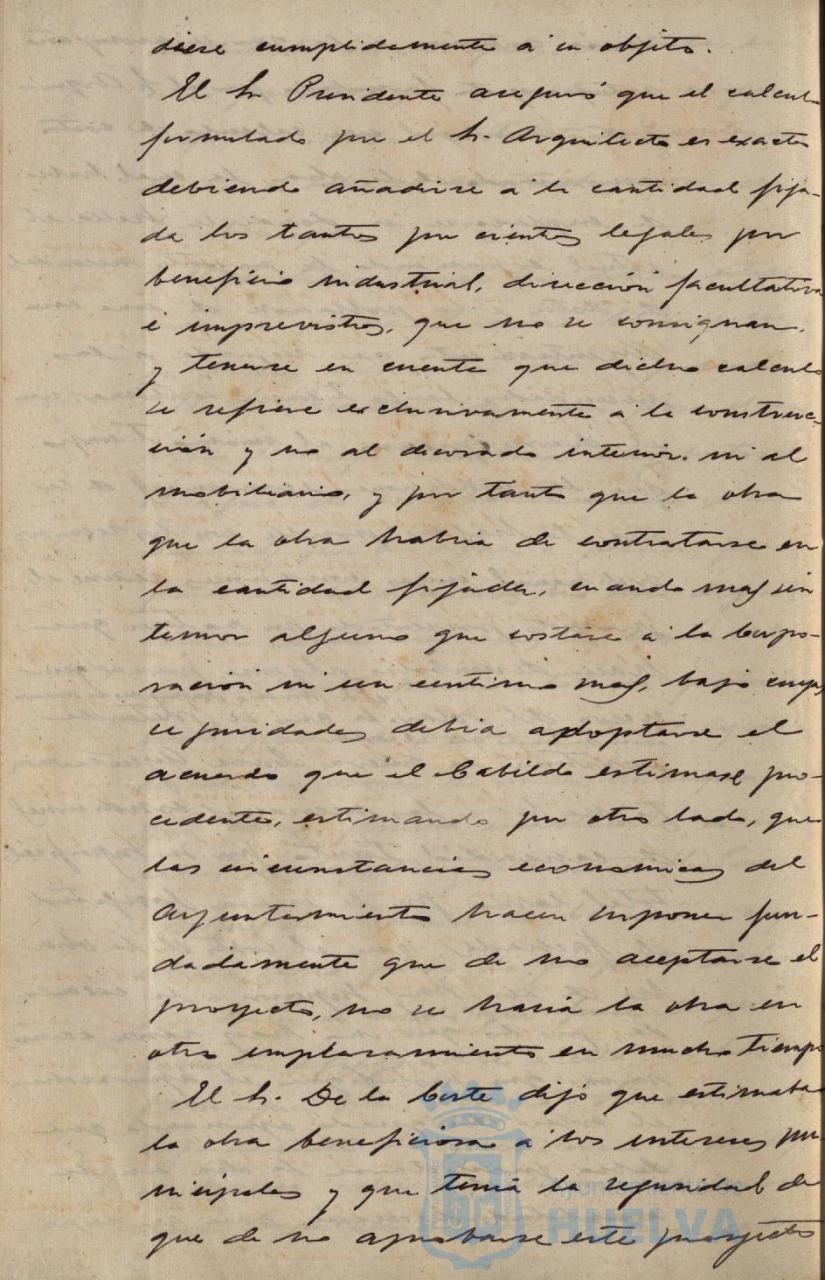 diese cumplidamente á su objeto.
El Sr. Presidente aseguró que el calculo
formulado por el Sr. Arquitecto es exacto
debiendo añadirse á la cantidad fija-
da los tantos por cientos legales por
beneficio industrial, dirección facultativa
é imprevistos, que no se consignan,
y tenerse en cuenta que dicho calculo
se refiere exclusivamente á la construc-
ción y no al decorado interior ni al
mobiliario, y por tanto que la obra
que la obra habria de contratarse en
la cantidad fijada, cuando mas, sin
temor alguno que costase á la Corpo-
ración ni un centimo mas, bajo cuyas
seguridades debia adoptarse el
acuerdo que el Cabildo estimase pro-
cedente, estimando por otro lado, que
las circunstancias economicas del
Ayuntamiento hacen suponer fun-
dadamente que de no aceptarse el
proyecto, no se haria la obra en
otro emplazamiento en mucho tiempo
El Sr. De la Corte dijo que estimaba
la obra beneficiosa á los intereses mu-
nicipales y que tenia la seguridad de
que de no aprobarse este proyecto
HUELVA